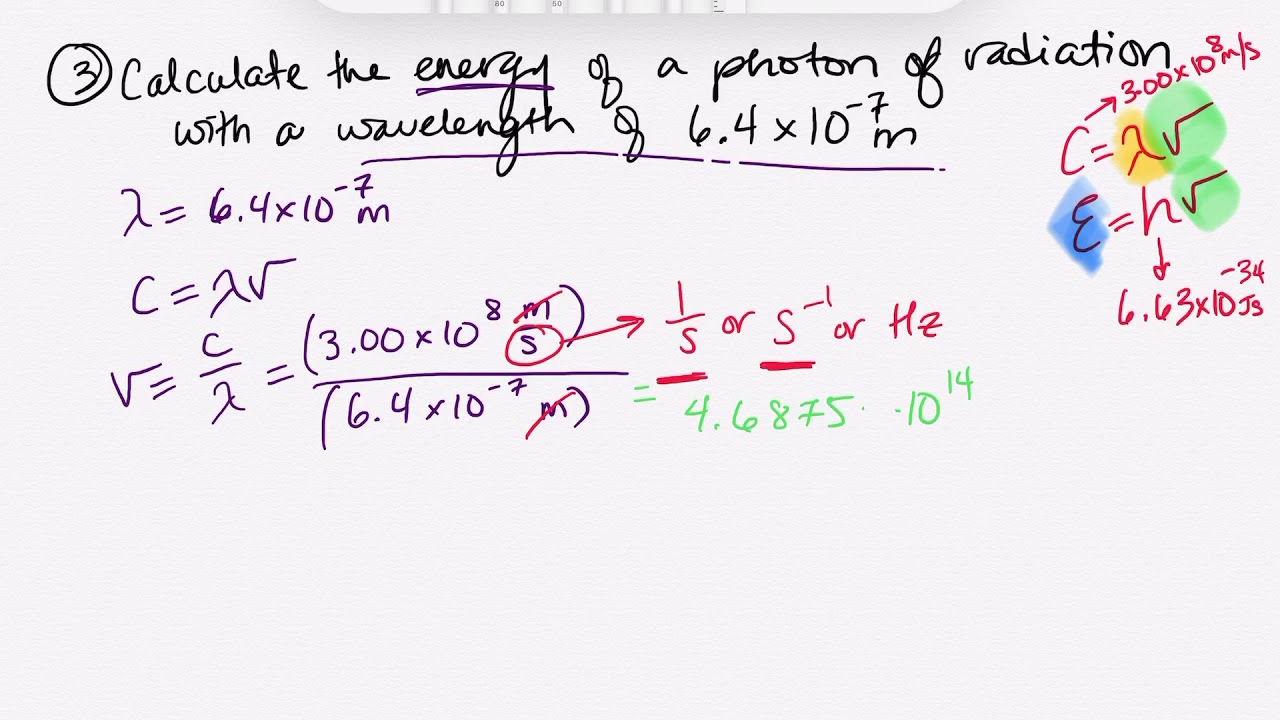 80 50
③ Calculate the energy of a photon of radiation
with a wavelength of 6.4 x 10⁻⁷ m
3.00 x 10⁸ m/s
C = λν
E = hν
6.63 x 10⁻³⁴ Js
λ = 6.4 x 10⁻⁷ m
C = λν
ν = C/λ = (3.00 x 10⁸ m/s) / (6.4 x 10⁻⁷ m) → 1/s or s⁻¹ or Hz
= 4.6875 · 10¹⁴